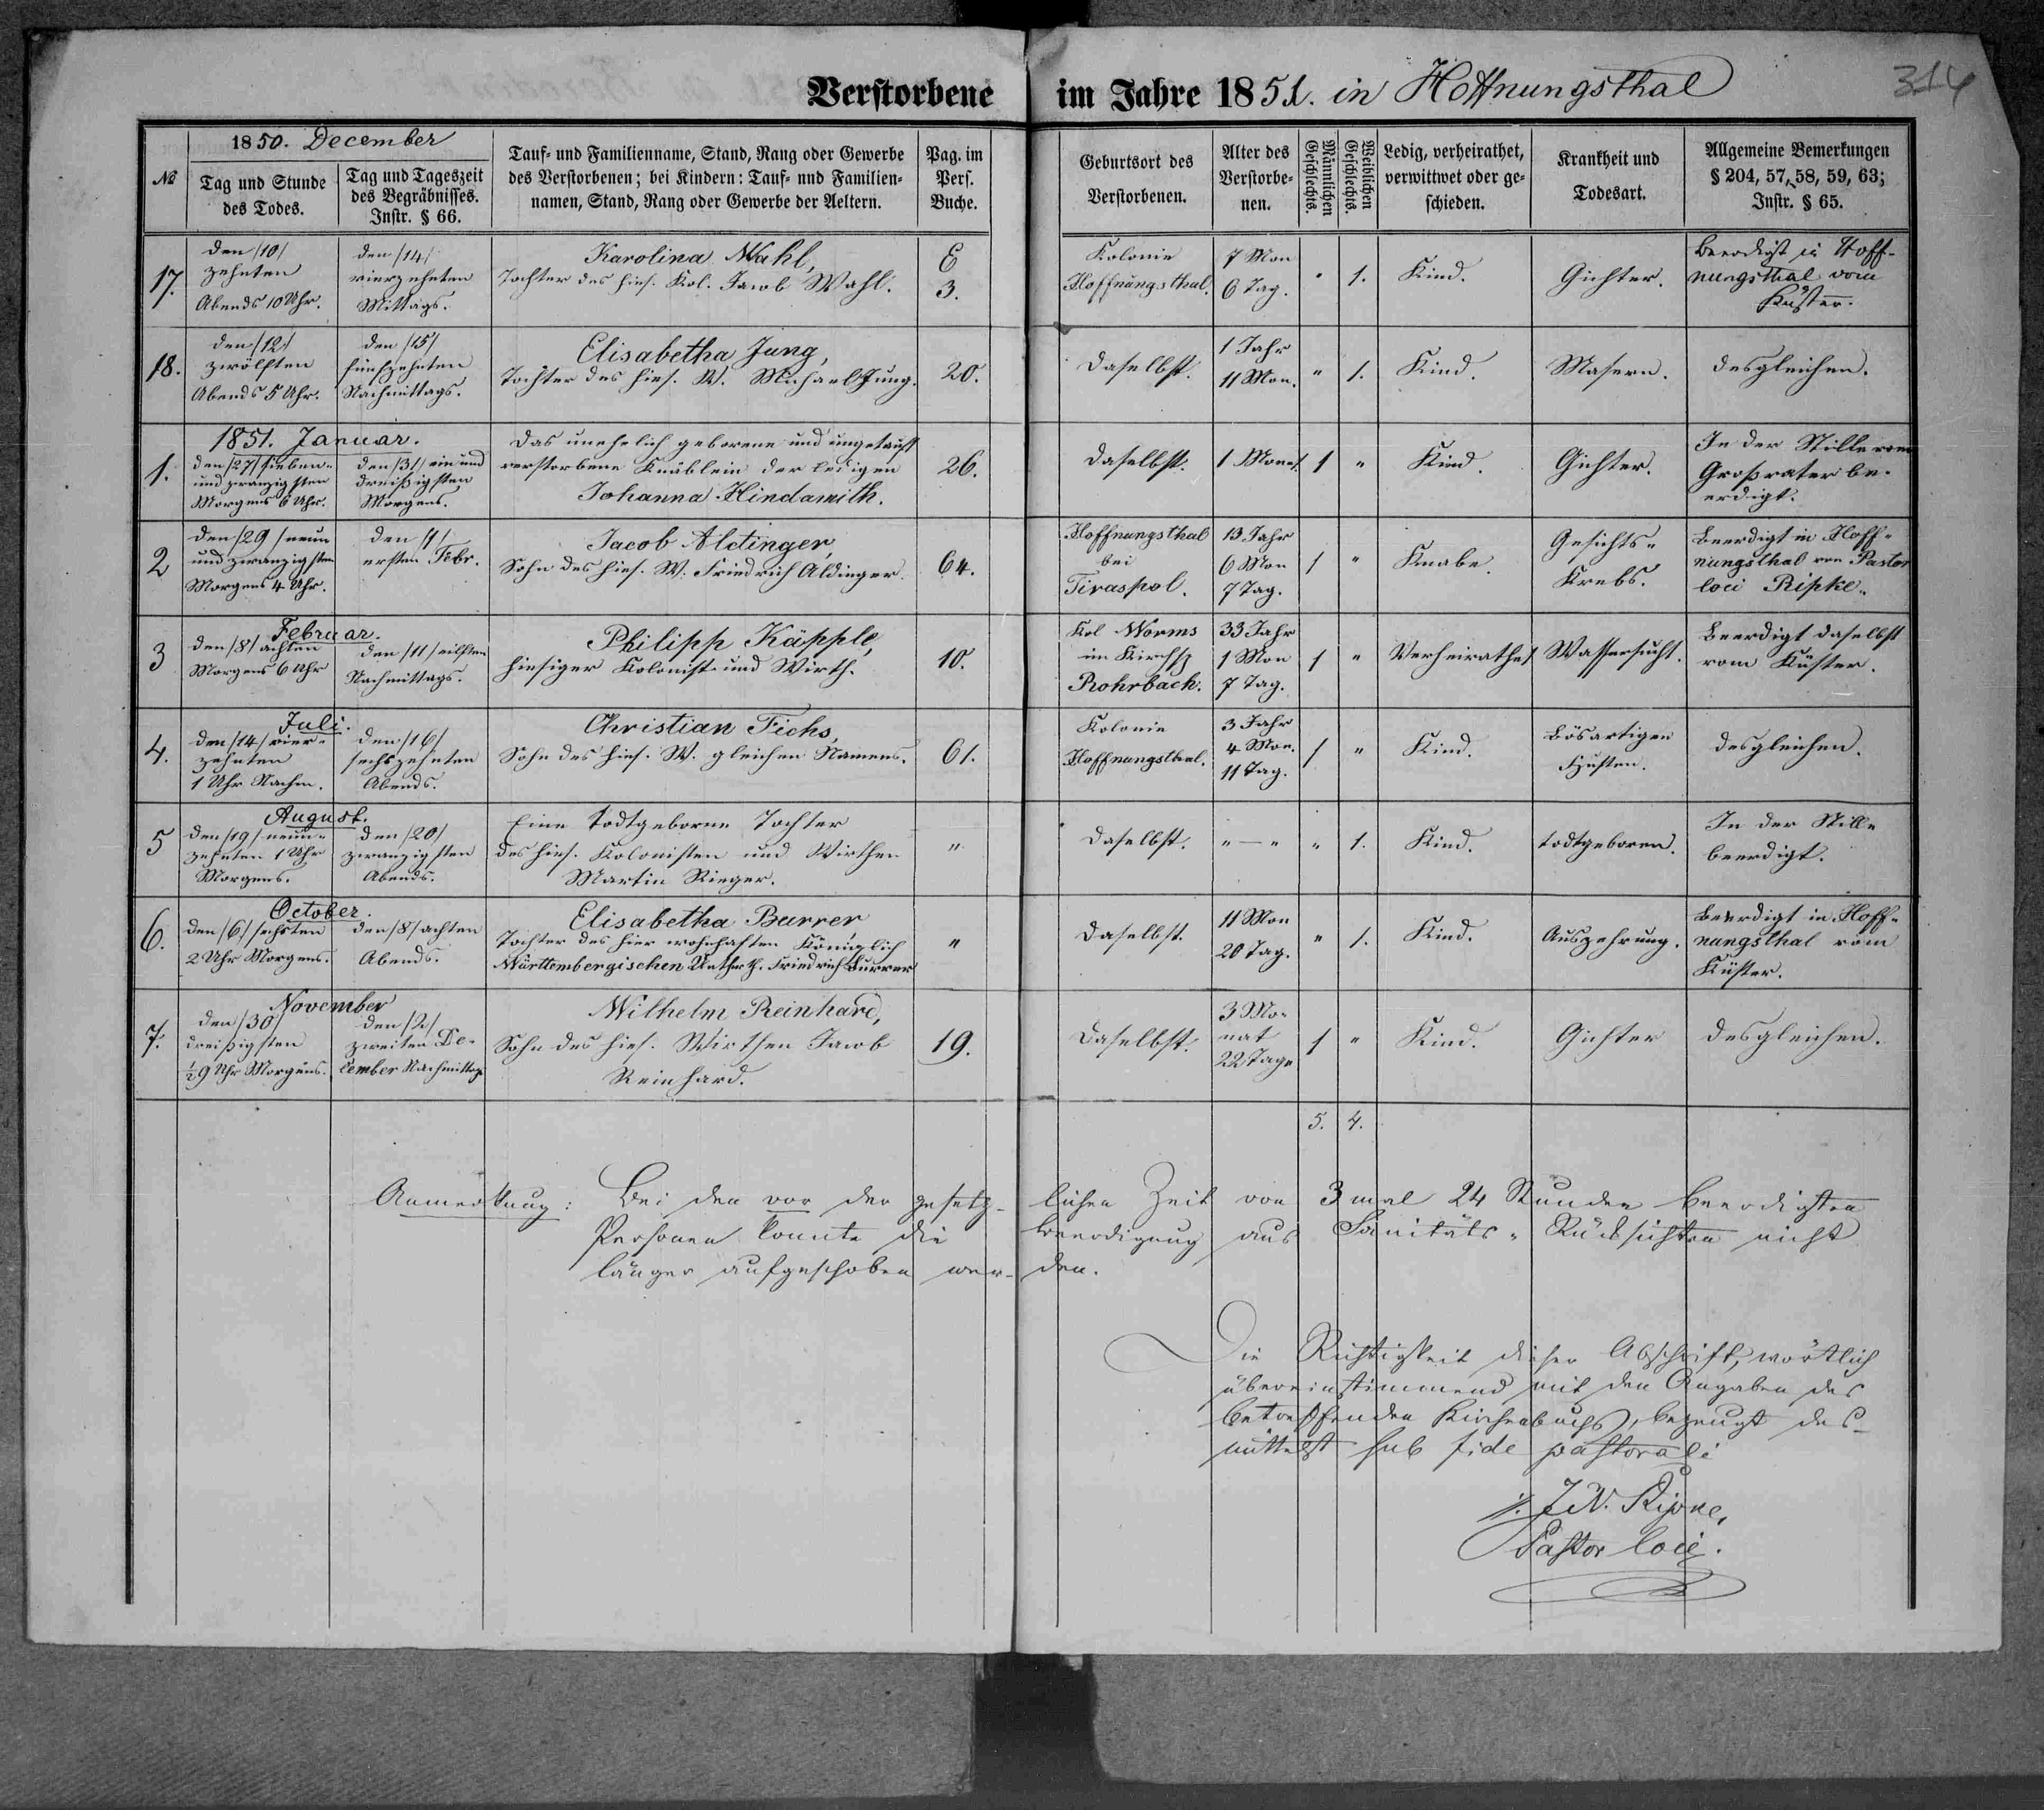 Verstorbene im Jahre 1851. in Hoffnungsthal
314
№
1850. December
Tag und Stunde
des Todes.
Tag und Tageszeit
des Begräbnisses.
Instr. § 66.
Tauf- und Familienname, Stand, Rang oder Gewerbe
des Verstorbenen; bei Kindern: Tauf- und Familien-
namen, Stand, Rang oder Gewerbe der Aeltern.
Pag. im
Pers.
Buche.
Geburtsort des
Verstorbenen.
Alter des
Verstorbe-
nen.
Männlichen
Geschlechts.
Weiblichen
Geschlechts.
Ledig, verheirathet,
verwittwet oder ge-
schieden.
Krankheit und
Todesart.
Allgemeine Bemerkungen
§ 204, 57, 58, 59, 63;
Instr. § 65.
17.
den /10/
zehnten
Abends 10 Uhr.
den /14/
vierzehnten
Mittags.
Karolina Wahl,
Tochter des hies. Kol. Jacob Wahl.
E
3.
Kolonie
Hoffnungsthal.
7 Mon
6 Tag.
1.
Kind.
Gichter.
Beerdigt in Hoff-
nungsthal vom
Küster.
18.
den /12/
zwölften
Abends 5 Uhr.
den /15/
fünfzehnten
Nachmittags.
Elisabetha Jung,
Tochter des hies. W. Michael Jung.
20.
Daselbst.
1 Jahr
11 Mon.
" 1.
Kind.
Masern.
desgleichen.
1851. Januar.
1.
den /27/ sieben-
und zwanzigsten
Morgens 6 Uhr.
den /31/ ein und
dreißigsten
Morgens.
Das unehelich geborene und ungetauft
verstorbene Knäblein der ledigen
Johanna Hindamith.
26.
Daselbst.
1 Monat
1 "
Kind.
Gichter.
In der Stille vom
Großvater be-
erdigt.
2
den /29/ neun
und zwanzigsten
Morgens 4 Uhr.
den /1/
ersten Febr.
Jacob Aldinger,
Sohn des hies. W. Friedrich Aldinger.
64.
Hoffnungsthal
bei
Tiraspol.
13 Jahr
6 Mon
7 Tag.
1 "
Knabe.
Gesichts-
Krebs.
Beerdigt in Hoff-
nungsthal von Pastor
loci Pipke.
Februar.
3
den /8/ achten
Morgens 6 Uhr
den /11/ eilften
Nachmittags.
Philipp Käpple,
hiesiger Kolonist und Wirth.
10.
Kol Worms
im Kirchsp
Rohrbach.
33 Jahr
1 Mon
7 Tag.
1 "
Verheirathet
Wassersucht.
Beerdigt daselbst
vom Küster.
Juli.
4.
den /14/ vier-
zehnten
1 Uhr Nachm.
den /16/
sechszehnten
Abends.
Christian Fichs,
Sohn des hies. W. gleichen Namens.
61.
Kolonie
Hoffnungsthal.
3 Jahr
4 Mon.
11 Tag.
1 "
Kind.
Bösartigen
Husten.
desgleichen.
August.
5
den /19/ neun-
zehnten 1 Uhr
Morgens.
den /20/
zwanzigsten
Abends.
Eine todtgeborne Tochter
des hies. Kolonisten und Wirthen
Martin Rieger.
"
Daselbst.
" — "
" 1.
Kind.
todtgeboren.
In der Stille
beerdigt.
October.
6.
den /6/ sechsten
2 Uhr Morgens.
den /8/ achten
Abends.
Elisabetha Burrer,
Tochter des hier wohnhaften Königlich
Württembergischen Unterth. Friedrich Burrer
"
Daselbst.
11 Mon
20 Tag.
" 1.
Kind.
Auszehrung.
Beerdigt in Hoff-
nungsthal vom
Küster.
November
7.
den /30/
dreißigsten
½9 Uhr Morgens.
den /2/
zweiten De-
cember Nachmittags
Wilhelm Reinhard,
Sohn des hies. Wirthen Jacob
Reinhard.
19.
Daselbst.
3 Mo-
nat
22 Tage
1 "
Kind.
Gichter
desgleichen.
5. 4.
Anmerkung: Bei den vor der gesetz- lichen Zeit von 3 mal 24 Stunden beerdigten
Personen konnte die Beerdigung aus Sanitäts- Rücksichten nicht
länger aufgeschoben wer- den.
Die Richtigkeit dieser Abschrift, wörtlich
übereinstimmend mit den Angaben des
betreffenden Kirchenbuchs, bezeugt des-
mittelst sub fide pastorali
Pastor loci.